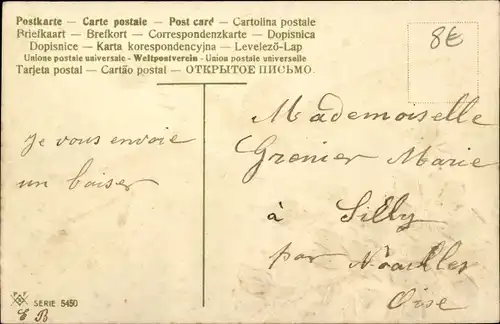 Postkarte — Carte postale — Post card — Cartolina postale
Briefkaart — Brefkort — Correspondenzkarte — Dopisnica
Dopisnice — Karta korespondencyjna — Levelező-Lap
Unione postale universale - Weltpostverein - Union postale universelle
Tarjeta postal — Cartão postal — ОТКРЫТОЕ ПИСЬМО.
8€
Mademoiselle
Grenier Marie
à Silly
par Noailles
Oise
je vous envoie
un baiser
SERIE 5450
E B